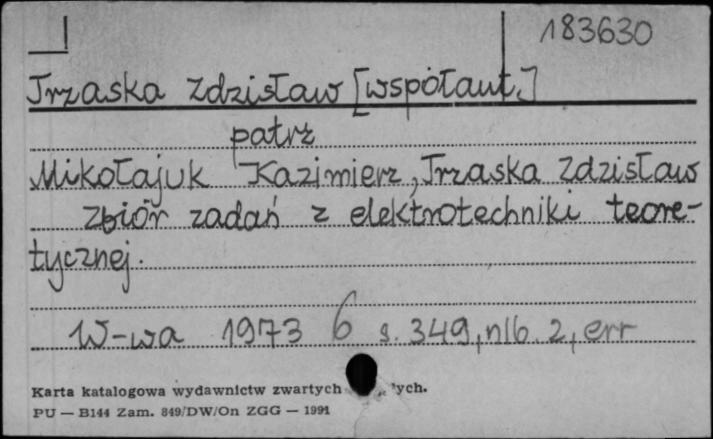 183630
Trzaska Zdzisław [współaut.]
patrz
Mikołajuk Kazimierz, Trzaska Zdzisław
Zbiór zadań z elektrotechniki teore-
tycznej.
W-wa 1973 6 s. 349, nlb. 2, err
Karta katalogowa wydawnictw zwartych
PU — B144 Zam. 849/DW/On ZGG — 1991